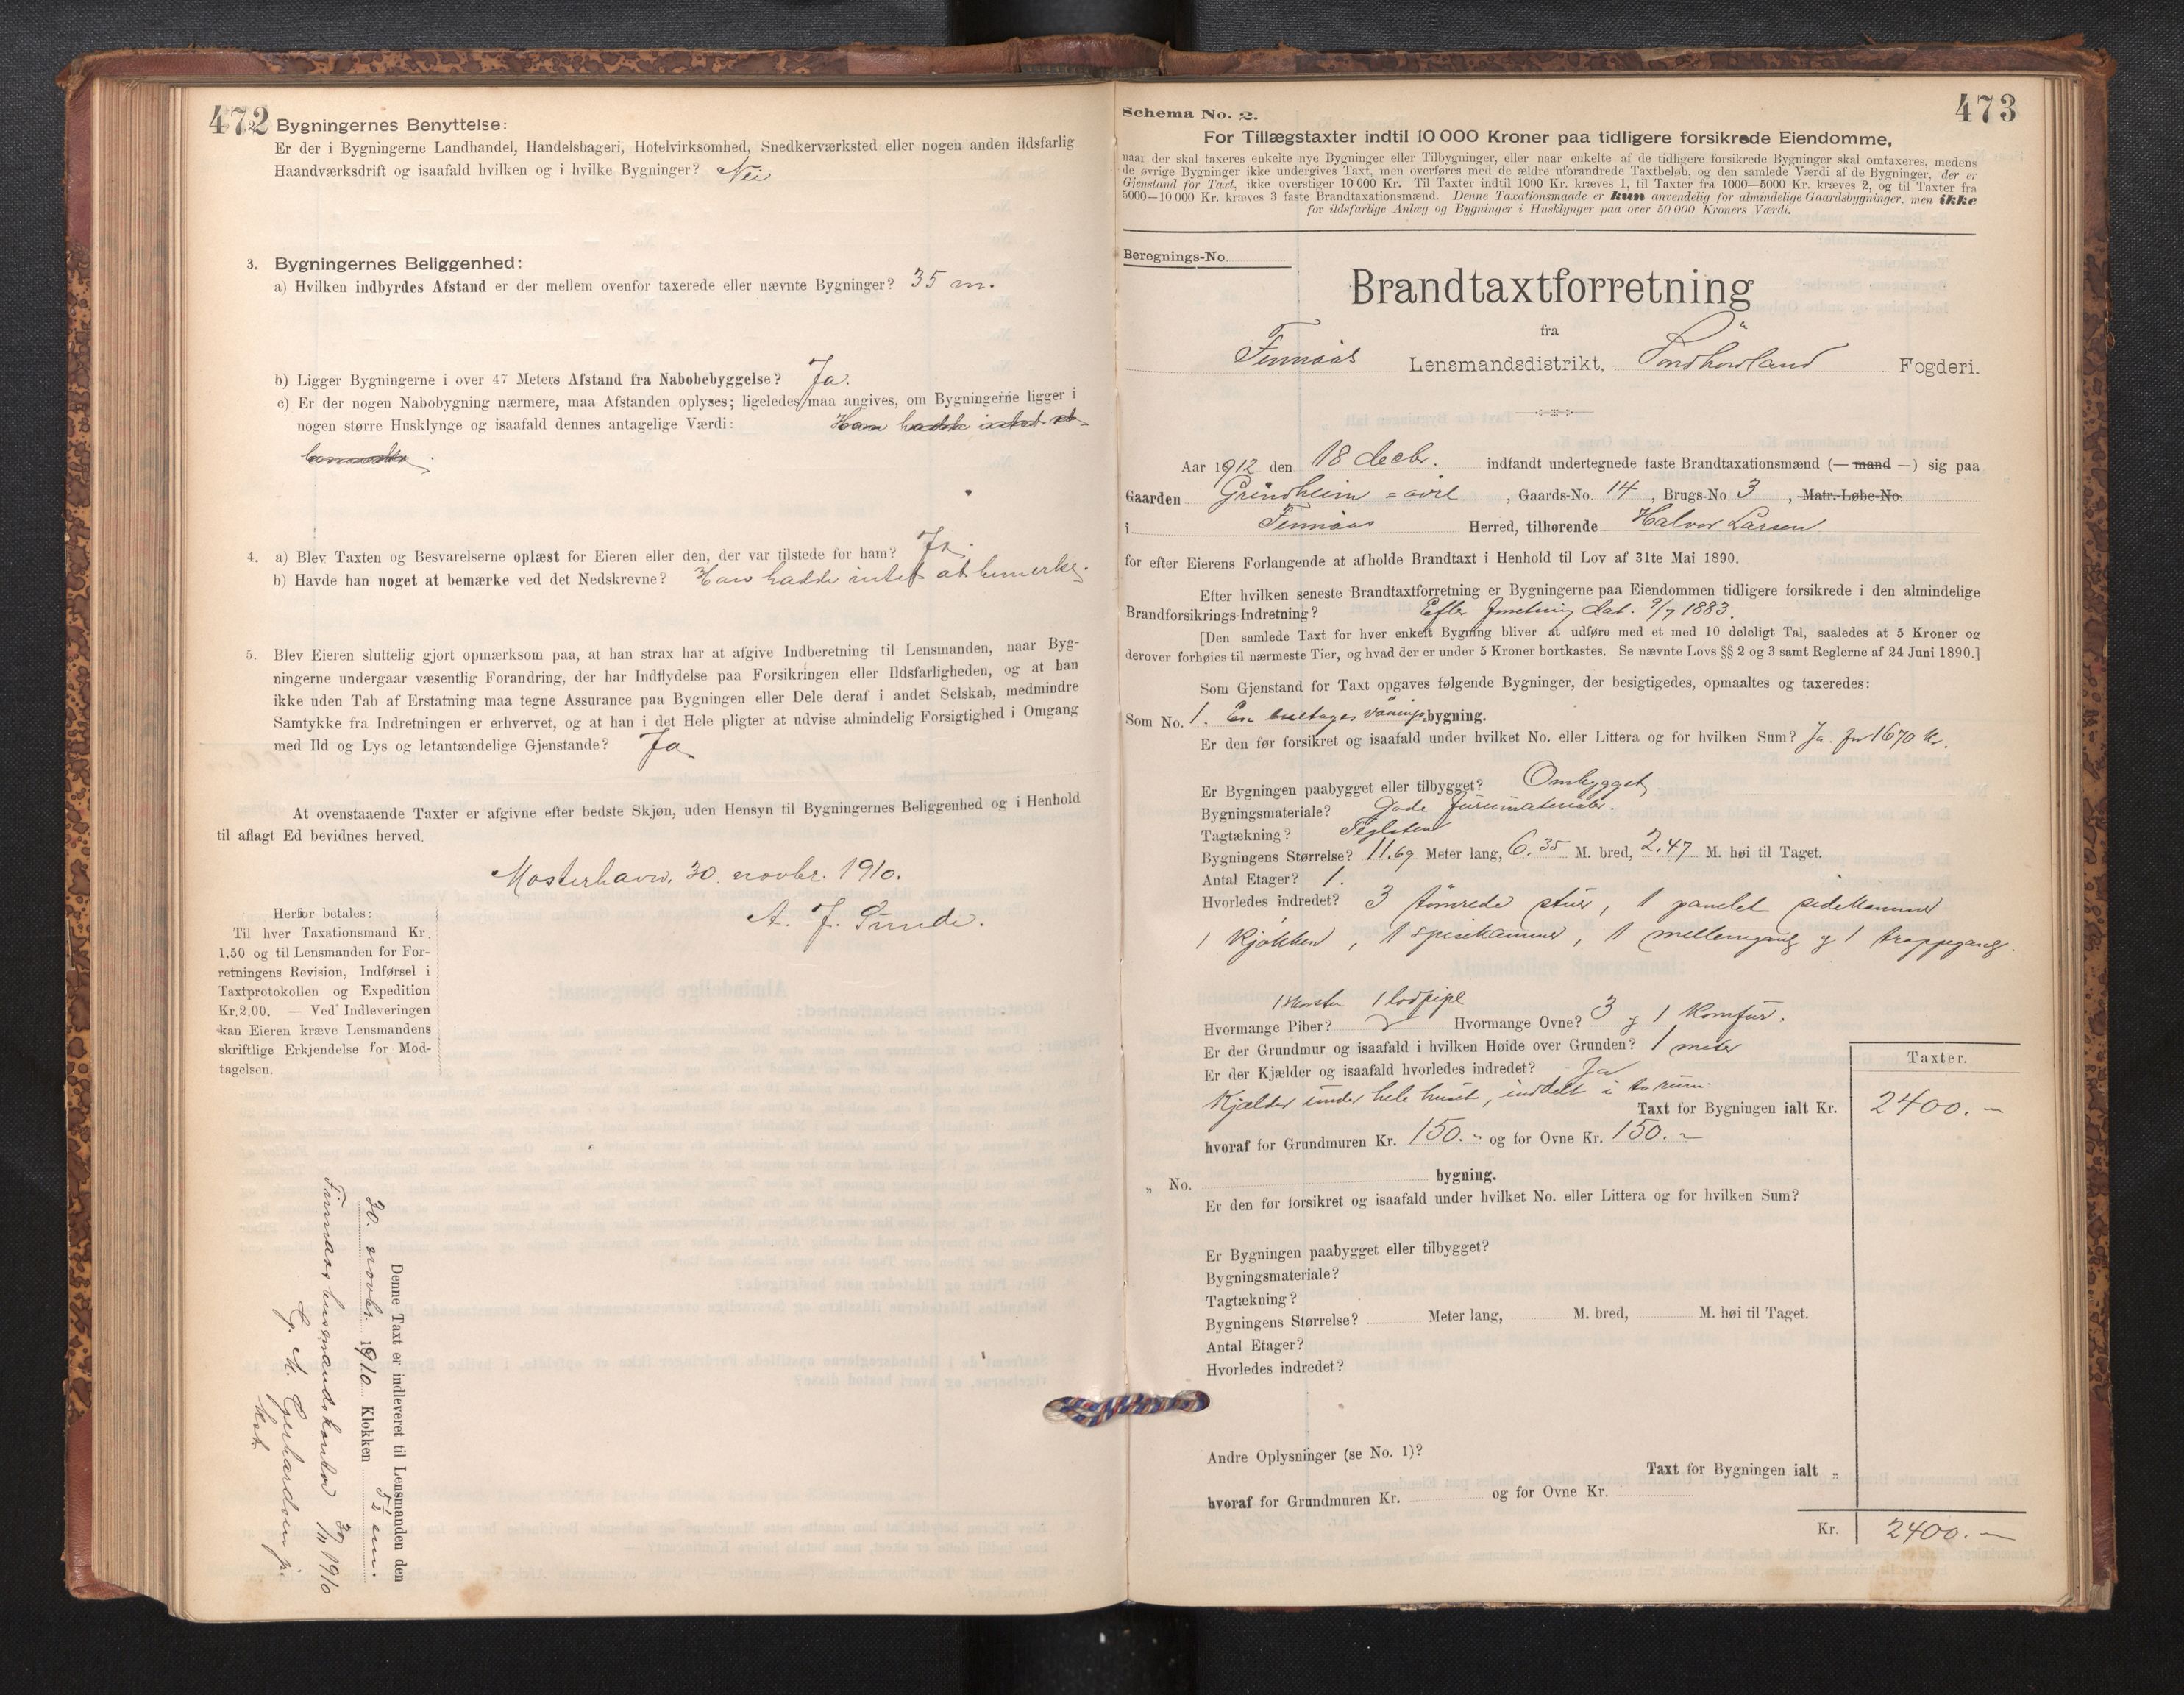 472
2. Bygningernes Benyttelse:
Er der i Bygningerne Landhandel, Handelsbageri, Hotelvirksomhed, Snedkerværksted eller nogen anden ildsfarlig
Haandværksdrift og isaafald hvilken og i hvilke Bygninger? Nei
3. Bygningernes Beliggenhed:
a) Hvilken indbyrdes Afstand er der mellem ovenfor taxerede eller nævnte Bygninger? 35 m.
b) Ligger Bygningerne i over 47 Meters Afstand fra Nabobebyggelse? Ja.
c) Er der nogen Nabobygning nærmere, maa Afstanden oplyses; ligeledes maa angives, om Bygningerne ligger i
nogen større Husklynge og isaafald dennes antagelige Værdi: Han hadde intet at
bemærke.
4. a) Blev Taxten og Besvarelserne oplæst for Eieren eller den, der var tilstede for ham? Ja.
b) Havde han noget at bemærke ved det Nedskrevne? Han hadde intet at bemerke.
5. Blev Eieren sluttelig gjort opmærksom paa, at han strax har at afgive Indberetning til Lensmanden, naar Byg-
ningerne undergaar væsentlig Forandring, der har Indflydelse paa Forsikringen eller Ildsfarligheden, og at han
ikke uden Tab af Erstatning maa tegne Assurance paa Bygningen eller Dele deraf i andet Selskab, medmindre
Samtykke fra Indretningen er erhvervet, og at han i det Hele pligter at udvise almindelig Forsigtighed i Omgang
med Ild og Lys og letantændelige Gjenstande? Ja
At ovenstaaende Taxter er afgivne efter bedste Skjøn, uden Hensyn til Bygningernes Beliggenhed og i Henhold
til aflagt Ed bevidnes herved.
Mosterhavn, 30. novbr. 1910.
A. J. Sunde.
Herfor betales:
Til hver Taxationsmand Kr.
1.50 og til Lensmanden for For-
retningens Revision, Indførsel i
Taxtprotokollen og Expedition
Kr. 2.00. — Ved Indleveringen
kan Eieren kræve Lensmandens
skriftlige Erkjendelse for Mod-
tagelsen.
Denne Taxt er indleveret til Lensmanden den
30. novbr. 1910 Klokken 5½ em.
Finnaas lensmandskontor 30/11 1910
G. M. Gerhardsen jr.
kst.
473
Schema No. 2.
For Tillægstaxter indtil 10 000 Kroner paa tidligere forsikrede Eiendomme,
naar der skal taxeres enkelte nye Bygninger eller Tilbygninger, eller naar enkelte af de tidligere forsikrede Bygninger skal omtaxeres, medens
de øvrige Bygninger ikke undergives Taxt, men overføres med de ældre uforandrede Taxtbeløb, og den samlede Værdi af de Bygninger, der er
Gjenstand for Taxt, ikke overstiger 10 000 Kr. Til Taxter indtil 1000 Kr. kræves 1, til Taxter fra 1000—5000 Kr. kræves 2, og til Taxter fra
5000—10 000 Kr. kræves 3 faste Brandtaxationsmænd. Denne Taxationsmaade er kun anvendelig for almindelige Gaardsbygninger, men ikke
for ildsfarlige Anlæg og Bygninger i Husklynger paa over 50 000 Kroners Værdi.
Beregnings-No.
Brandtaxtforretning
fra
Finnaas Lensmandsdistrikt, Söndhordland Fogderi.
Aar 1912 den 18 decbr. indfandt undertegnede faste Brandtaxationsmænd (— mand —) sig paa
Gaarden Grindheim = övre, Gaards-No. 14, Brugs-No. 3, Matr.-Løbe-No.
i Finnaas Herred, tilhørende Halvor Larsen
for efter Eierens Forlangende at afholde Brandtaxt i Henhold til Lov af 31te Mai 1890.
Efter hvilken seneste Brandtaxtforretning er Bygningerne paa Eiendommen tidligere forsikrede i den almindelige
Brandforsikrings-Indretning? Efter forretning dat. 9/7 1883.
[Den samlede Taxt for hver enkelt Bygning bliver at udføre med et med 10 deleligt Tal, saaledes at 5 Kroner og
derover forhøies til nærmeste Tier, og hvad der er under 5 Kroner bortkastes. Se nævnte Lovs §§ 2 og 3 samt Reglerne af 24 Juni 1890.]
Som Gjenstand for Taxt opgaves følgende Bygninger, der besigtigedes, opmaaltes og taxeredes:
Som No. 1. En enetages vånings bygning.
Er den før forsikret og isaafald under hvilket No. eller Littera og for hvilken Sum? Ja. for 1670 kr.
Er Bygningen paabygget eller tilbygget? Ombygget
Bygningsmateriale? Gode furumaterialer.
Tagtækning? Teglsten
Bygningens Størrelse? 11.69 Meter lang, 6.35 M. bred, 2.47 M. høi til Taget.
Antal Etager? 1.
Hvorledes indredet? 3 tömrede stuer, 1 panelet sidekammer
1 kjökken, 1 spisekammer, 1 mellemgang og 1 trappegang.
1 skorsten 1 lodpipe
Hvormange Piber? 2 Hvormange Ovne? 3 og 1 komfur.
Er der Grundmur og isaafald i hvilken Høide over Grunden? 1 meter
Er der Kjælder og isaafald hvorledes indredet? Ja
Kjælder under hele huset, inddelt i to rum.
Taxter.
Taxt for Bygningen ialt Kr. 2400. —
hvoraf for Grundmuren Kr. 150. - og for Ovne Kr. 150. -
„ No. bygning.
Er den før forsikret og isaafald under hvilket No. eller Littera og for hvilken Sum?
Er Bygningen paabygget eller tilbygget?
Bygningsmateriale?
Tagtækning?
Bygningens Størrelse? Meter lang, M. bred, M. høi til Taget.
Antal Etager?
Hvorledes indredet?
Andre Oplysninger (se No. 1)?
Taxt for Bygningen ialt „
hvoraf for Grundmuren Kr. og for Ovne Kr.
Kr. 2400. —